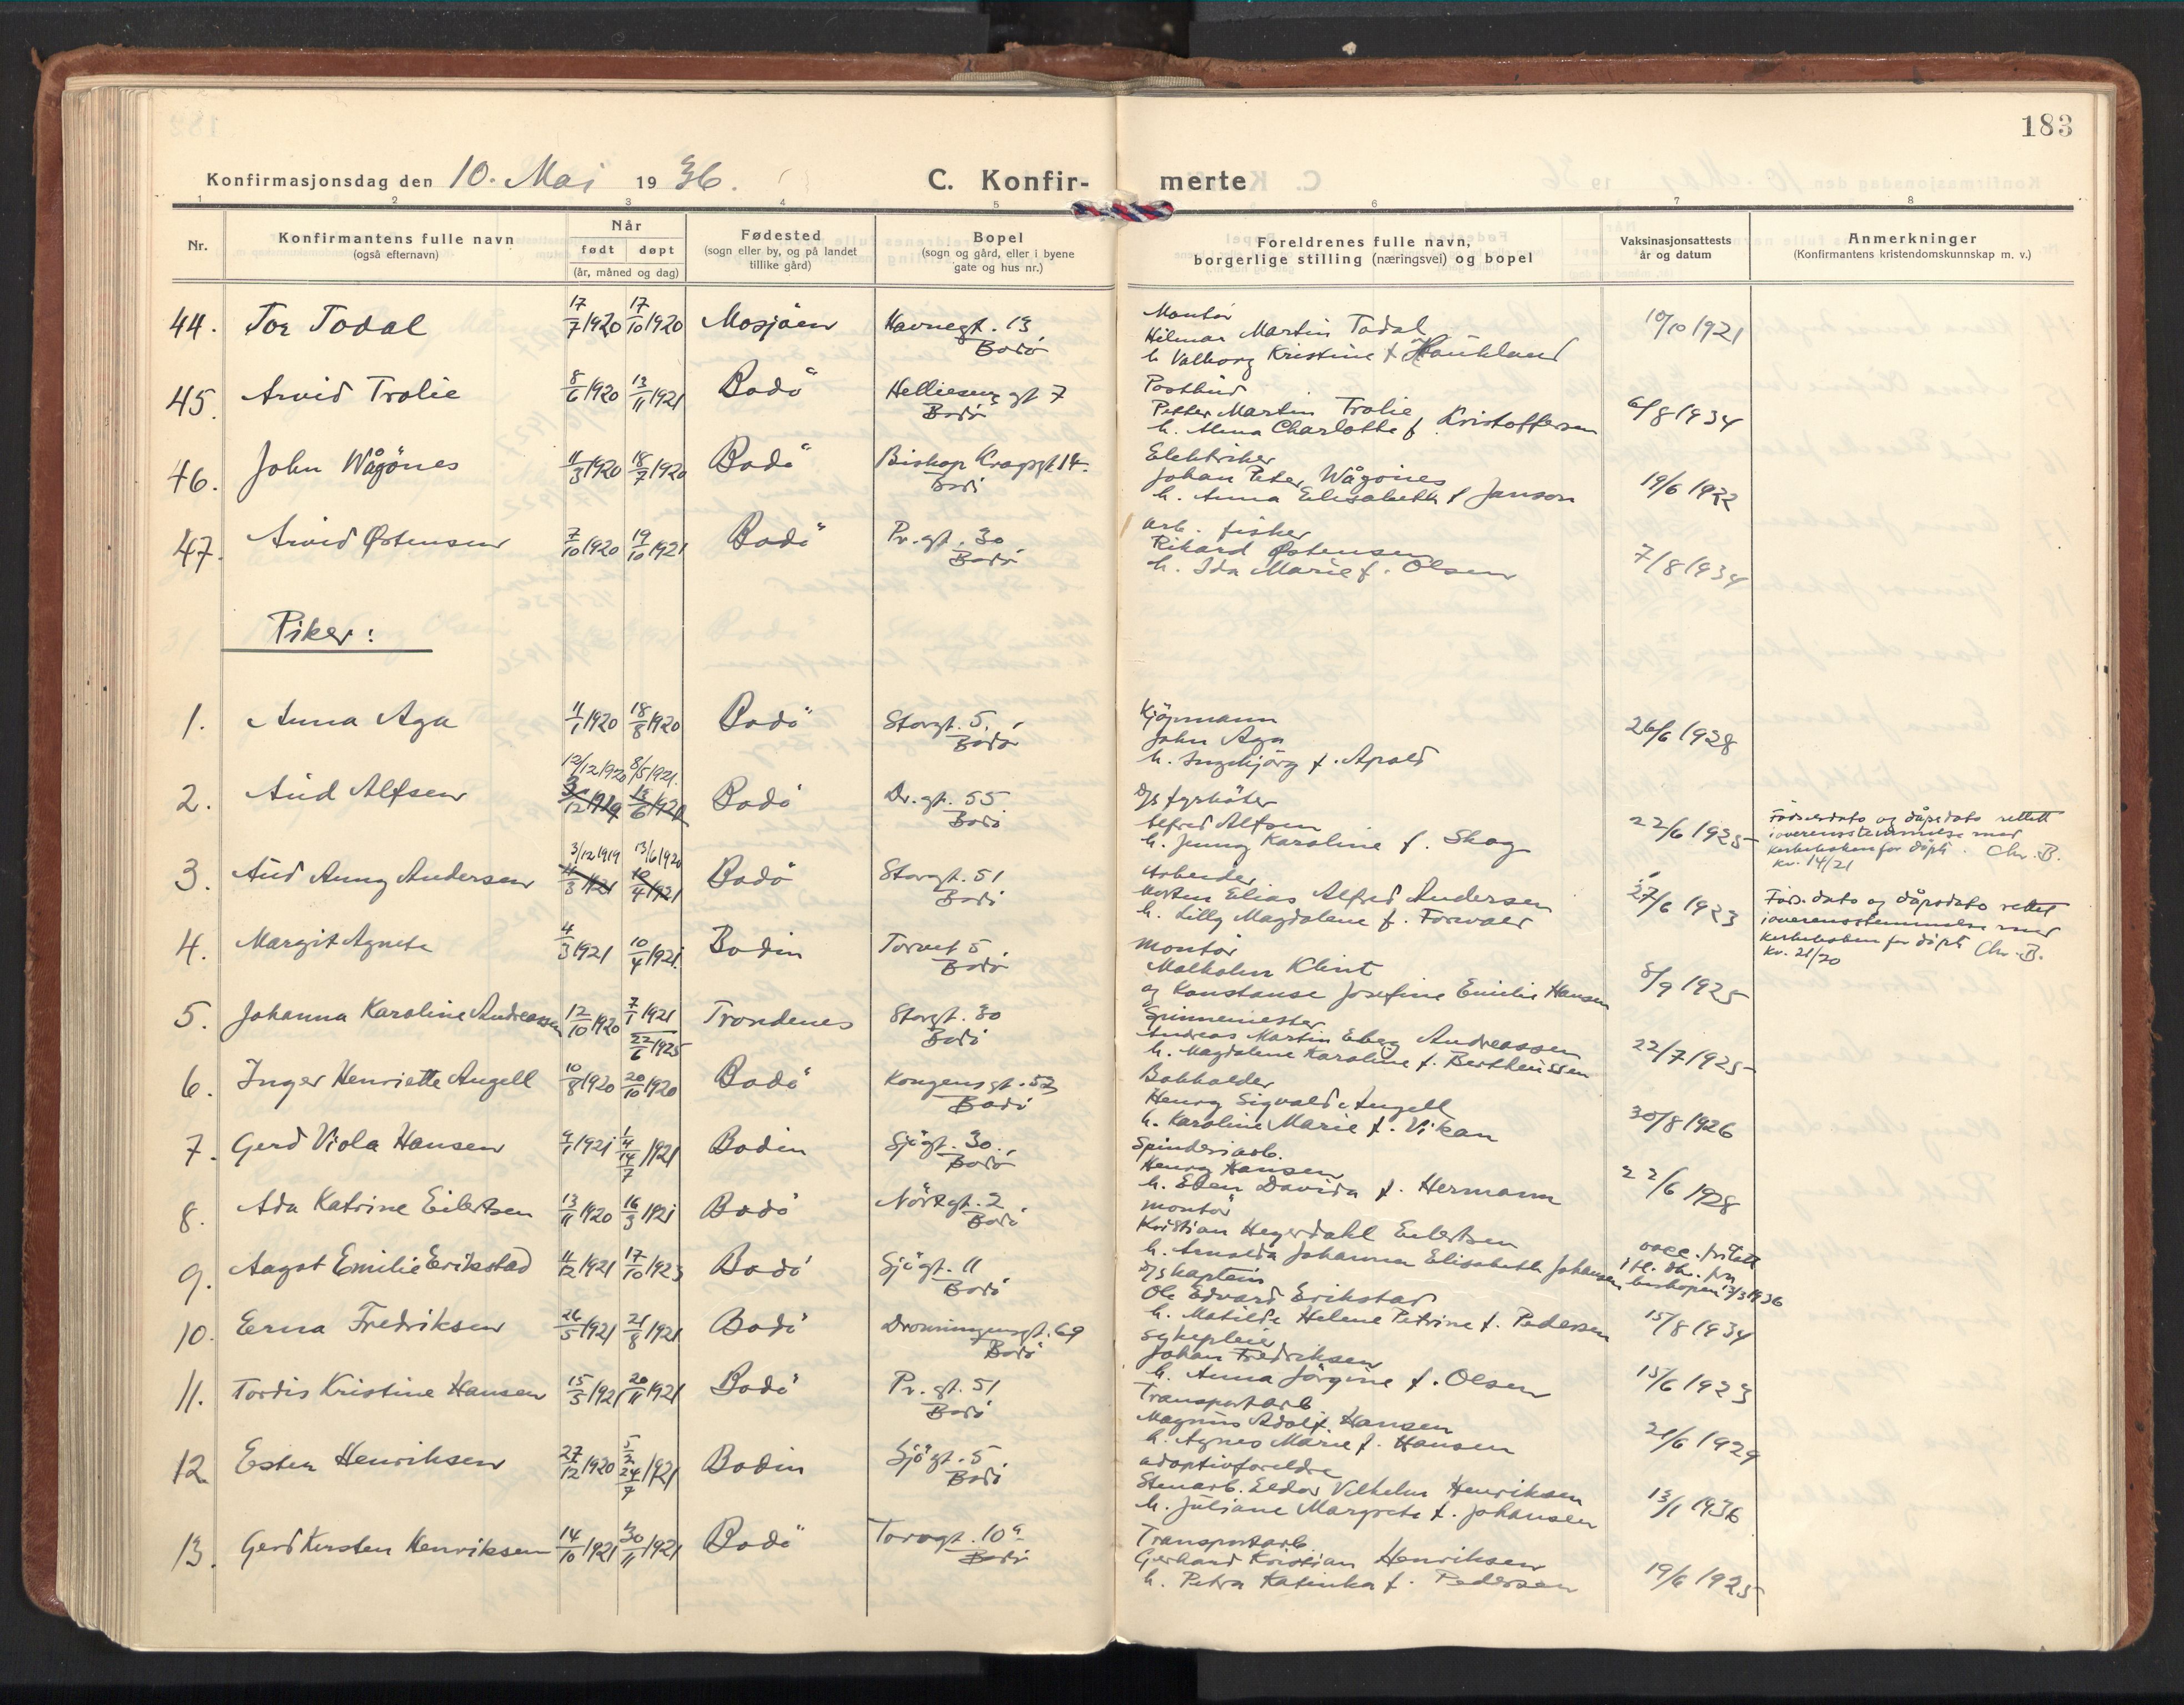 183
Konfirmasjonsdag den 10. Mai 1936.
C. Konfir-merte
1 2 3 4 5 6 7 8
Nr.
Konfirmantens fulle navn
(også efternavn)
Når
født døpt
(år, måned og dag)
Fødested
(sogn eller by, og på landet
tillike gård)
Bopel
(sogn og gård, eller i byene
gate og hus nr.)
Foreldrenes fulle navn,
borgerlige stilling (næringsvei) og bopel
Vaksinasjonsattests
år og datum
Anmerkninger
(Konfirmantens kristendomskunnskap m. v.)
44. Tor Todal 17/7 1920 17/10 1920 Mosjöen Havnegt. 13 Bodö
Montör
Hilmar Martin Todal
h. Valborg Kristine f. Haukland
10/10 1921
45. Arvid Trolie 8/6 1920 13/11 1921 Bodö Helliesens gt 7 Bodö
Postbud
Petter Martin Trolie
h. Alma Charlotte f. Kristoffersen
6/8 1934
46. John Wågönes 11/3 1920 18/7 1920 Bodö Biskop Kragsgt 14. Bodö
Elektriker
Johan Peter Wågönes
h. Anna Elisabeth f Janson
19/6 1922
47. Arvid Østensen 7/10 1920 19/10 1921 Bodö Pr. gt. 30 Bodö
arb. fisker
Rikard Østensen
h. Ida Marie f. Olsen
7/8 1934
Piker:
1. Anna Aga 11/1 1920 18/8 1920 Bodö Storgt. 5. Bodö
Kjöpmann
John Aga
h. Ingebjörg f. Apold
26/6 1928
2. Aud Alfsen 12/12 1920 8/5 1921. 3/12 1919 13/6 1920 Bodö Dr. gt. 55 Bodö
D/s fyrböter
Alfred Alfsen
h. Jenny Karoline f. Skog
22/6 1925
Födselsdato og dåpsdato rettet
i overensstemmelse med
kirkeboken for döpte. Chr. B.
Kv. 14/21
3. Aud Anny Andersen 3/12 1919 13/6 1920 11/3 1921 10/4 1921 Bodö Storgt. 51 Bodö
Arbeider
Morten Elias Alfred Andersen
h. Lilly Magdalene f. Forvaer
27/6 1923
Föds. dato og dåpsdato rettet
i overensstemmelse med
kirkeboken for döpte Chr. B.
Kv. 21/20
4. Margit Agnete 4/3 1921 10/4 1921. Bodin Torvet 5 Bodö
montör
Malholm Klint
og Konstanse Josefine Emilie Hansen
8/9 1925
5. Johanna Karoline Andreassen 12/10 1920 7/1 1921 22/6 1925 Trondenes Storgt. 30 Bodö
Spinnemester
Andreas Martin Eberg Andreassen
h. Magdalene Karoline f. Bertheussen
22/7 1925
6. Inger Henriette Angell 10/8 1920 20/10 1920 Bodö Kongensgt. 52 Bodö
Bokholder
Henry Sigvald Angell
h. Karoline Marie f. Vikan
30/8 1926
7. Gerd Viola Hansen 9/1 1921 1/4 14/7 1921 Bodin Sjögt. 30. Bodö
Spinderiarb.
Henry Hansen
h. Ellen Davida f. Hermann
22/6 1928
8. Ada Katrine Eilertsen 13/11 1920 16/3 1921 Bodö Nörregt. 2 Bodö
montör
Kristian Hegerdahl Eilertsen
h. Arnolda Johanna Elisabeth Johansen
vacc. fritatt
i fl. dh. fra
biskopen 13/3 1936
9. Aagot Emilie Erikstad 11/12 1921 17/10 1923 Bodö Sjögt. 11 Bodö
D/s kaptein
Ole Edvard Erikstad
h. Matilde Helene Petrine f. Pedersen
15/8 1934
10. Erna Fredriksen 26/5 1921 21/8 1921 Bodö Dronningensgt. 69 Bodö
sykepleier
Johan Fredriksen
h. Anna Jörgine f. Olsen
15/6 1923
11. Tordis Kristine Hansen 15/5 1921 20/11 1921 Bodö Pr. gt. 51 Bodö
Transportarb
Magnus Adolf Hansen
h. Agnes Marie f. Hansen
21/6 1929
12 Ester Henriksen 27/12 1920 5/2 24/7 1921 Bodin Sjögt. 5 Bodö
adoptivforeldre
Stenarb. Eldor Vilhelm Henriksen
h. Juliane Margrete f. Johansen
13/1 1936
13. Gerd Kirsten Henriksen 14/10 1921 30/11 1921 Bodö Torvgt. 10a Bodö
Transportarb.
Gerhard Kristian Henriksen
h. Petra Katinka f. Pedersen
19/6 1925